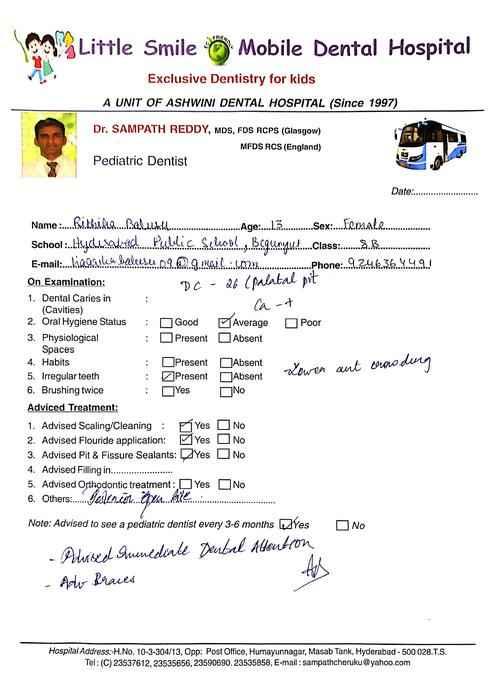 Little Smile ECO FRIENDLY Mobile Dental Hospital
Exclusive Dentistry for kids
A UNIT OF ASHWINI DENTAL HOSPITAL (Since 1997)
Dr. SAMPATH REDDY, MDS, FDS RCPS (Glasgow)
MFDS RCS (England)
Pediatric Dentist
Date:
Name: Age: 13 Sex: Female
School: Hyderabad Public School, Begumpet Class: 8 B
E-mail: @gmail.com Phone: 9246364491
On Examination: DC - 26 (palatal pit
1. Dental Caries in (Cavities) : Ca - +
2. Oral Hygiene Status : Good Average Poor
3. Physiological Spaces : Present Absent
4. Habits : Present Absent
5. Irregular teeth : Present Absent - Lower ant crowding
6. Brushing twice : Yes No
Adviced Treatment:
1. Advised Scaling/Cleaning : Yes No
2. Advised Flouride application: Yes No
3. Advised Pit & Fissure Sealants: Yes No
4. Advised Filling in
5. Advised Orthodontic treatment : Yes No
6. Others: open bite
Note: Advised to see a pediatric dentist every 3-6 months Yes No
- Advised Immediate Dental Attention
- Adv Braces
Hospital Address:-H.No. 10-3-304/13, Opp: Post Office, Humayunnagar, Masab Tank, Hyderabad - 500 028.T.S.
Tel : (C) 23537612, 23535656, 23590690. 23535858, E-mail : sampathcheruku@yahoo.com